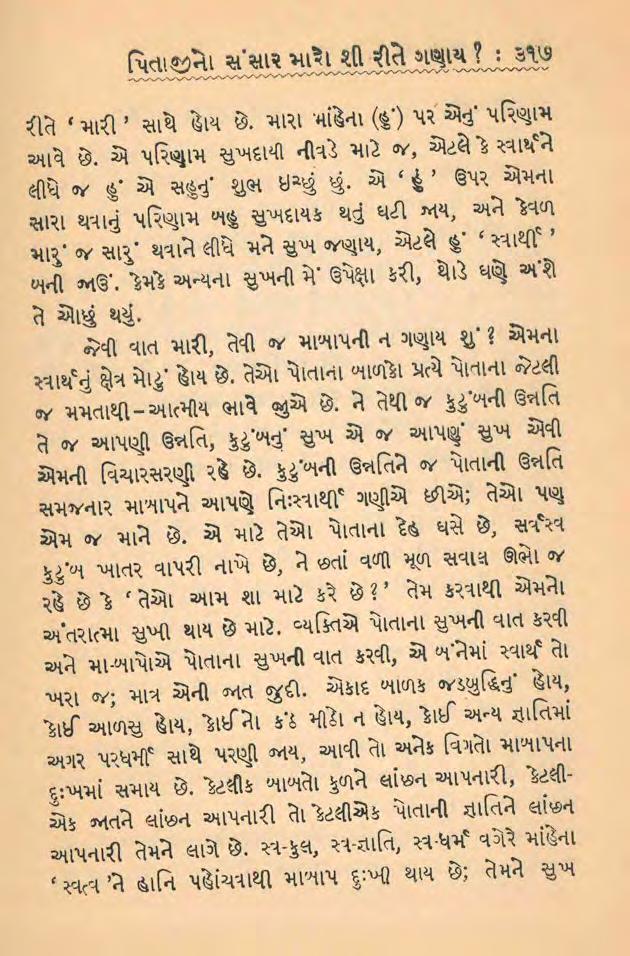 પિતાજીનો સંસાર મારો શી રીતે ગણાય ? : ૩૧૭
રીતે ‘ મારી ’ સાથે હોય છે. મારા માંહેના (હું) પર એનું પરિણામ
આવે છે. એ પરિણામ સુખદાયી નીવડે માટે જ, એટલે કે સ્વાર્થને
લીધે જ હું એ સહુનું શુભ ઇચ્છું છું. એ ‘ હું ’ ઉપર એમના
સારા થવાનું પરિણામ બહુ સુખદાયક થતું ઘટી જાય, અને કેવળ
મારું જ સારું થવાને લીધે મને સુખ જણાય, એટલે હું ‘ સ્વાર્થી ’
બની જાઉં. કેમકે અન્યના સુખની મેં ઉપેક્ષા કરી, થોડે ઘણે અંશે
તે ઓછું થયું.
જેવી વાત મારી, તેવી જ માબાપની ન ગણાય શું ? એમના
સ્વાર્થનું ક્ષેત્ર મોટું હોય છે. તેઓ પોતાના બાળકો પ્રત્યે પોતાના જેટલી
જ મમતાથી – આત્મીય ભાવે જીએ છે. ને તેથી જ કુટુંબની ઉન્નતિ
તે જ આપણી ઉન્નતિ, કુટુંબનું સુખ એ જ આપણું સુખ એવી
એમની વિચારસરણી રહે છે. કુટુંબની ઉન્નતિને જ પોતાની ઉન્નતિ
સમજનાર માબાપને આપણે નિઃસ્વાર્થી ગણીએ છીએ; તેઓ પણ
એમ જ માને છે. એ માટે તેઓ પોતાના દેહ ઘસે છે, સર્વસ્વ
કુટુંબ ખાતર વાપરી નાખે છે, ને છતાં વળી મૂળ સવાલ ઊભો જ
રહે છે કે ‘ તેઓ આમ શા માટે કરે છે ? ’ તેમ કરવાથી એમનો
અંતરાત્મા સુખી થાય છે માટે. વ્યક્તિએ પોતાના સુખની વાત કરવી
અને મા-બાપોએ પોતાના સુખની વાત કરવી, એ બંનેમાં સ્વાર્થ તો
ખરા જ; માત્ર એની જાત જુદી. એકાદ બાળક જડબુદ્ધિનું હોય,
કોઈ આળસુ હોય, કોઈનો કંઠ મીઠો ન હોય, કોઈ અન્ય જ્ઞાતિમાં
અગર પરધર્મી સાથે પરણી જાય, આવી તો અનેક વિગતો માબાપના
દુઃખમાં સમાય છે. કેટલીક બાબતો કુળને લાંછન આપનારી, કેટલી-
એક જાતને લાંછન આપનારી તો કેટલીએક પોતાની જ્ઞાતિને લાંછન
આપનારી તેમને લાગે છે. સ્વ-કુલ, સ્વ-જ્ઞાતિ, સ્વ-ધર્મ વગેરે માંહેના
‘ સ્વત્વ ’ને હાનિ પહોંચવાથી માબાપ દુઃખી થાય છે; તેમને સુખ